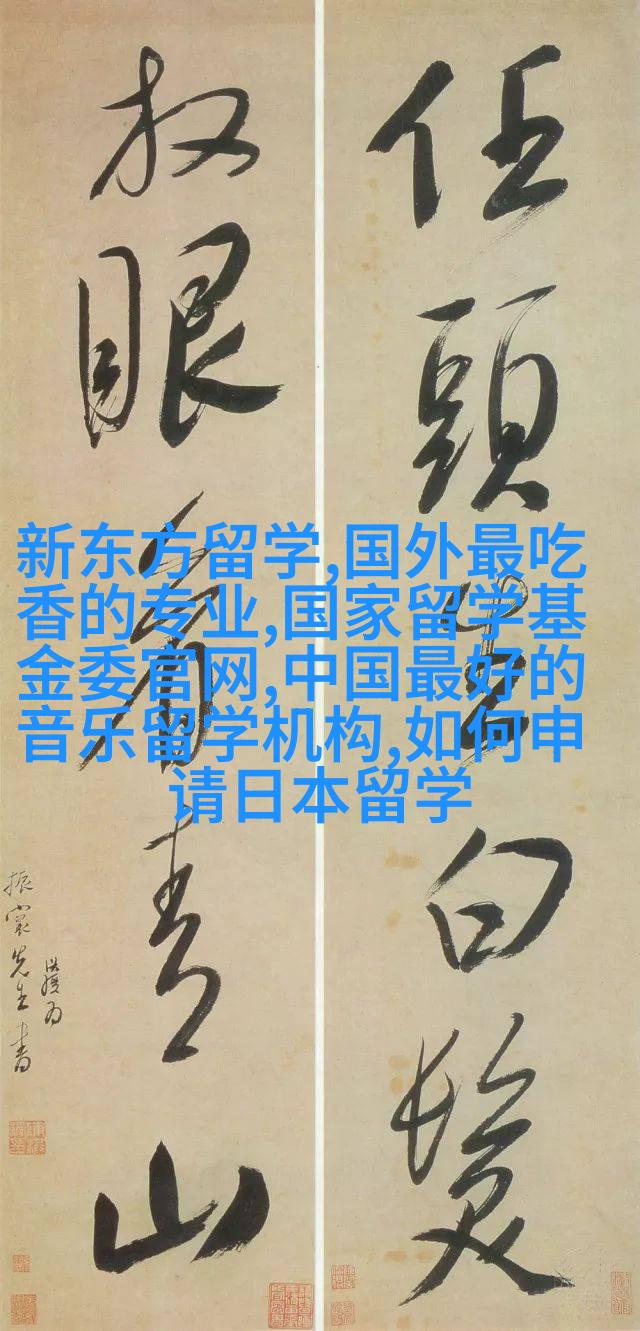 任頭生白髮
放眼看青山
振裳先生書
新东方留学,国外最吃
香的专业,国家留学基
金委官网,中国最好的
音乐留学机构,如何申
请日本留学